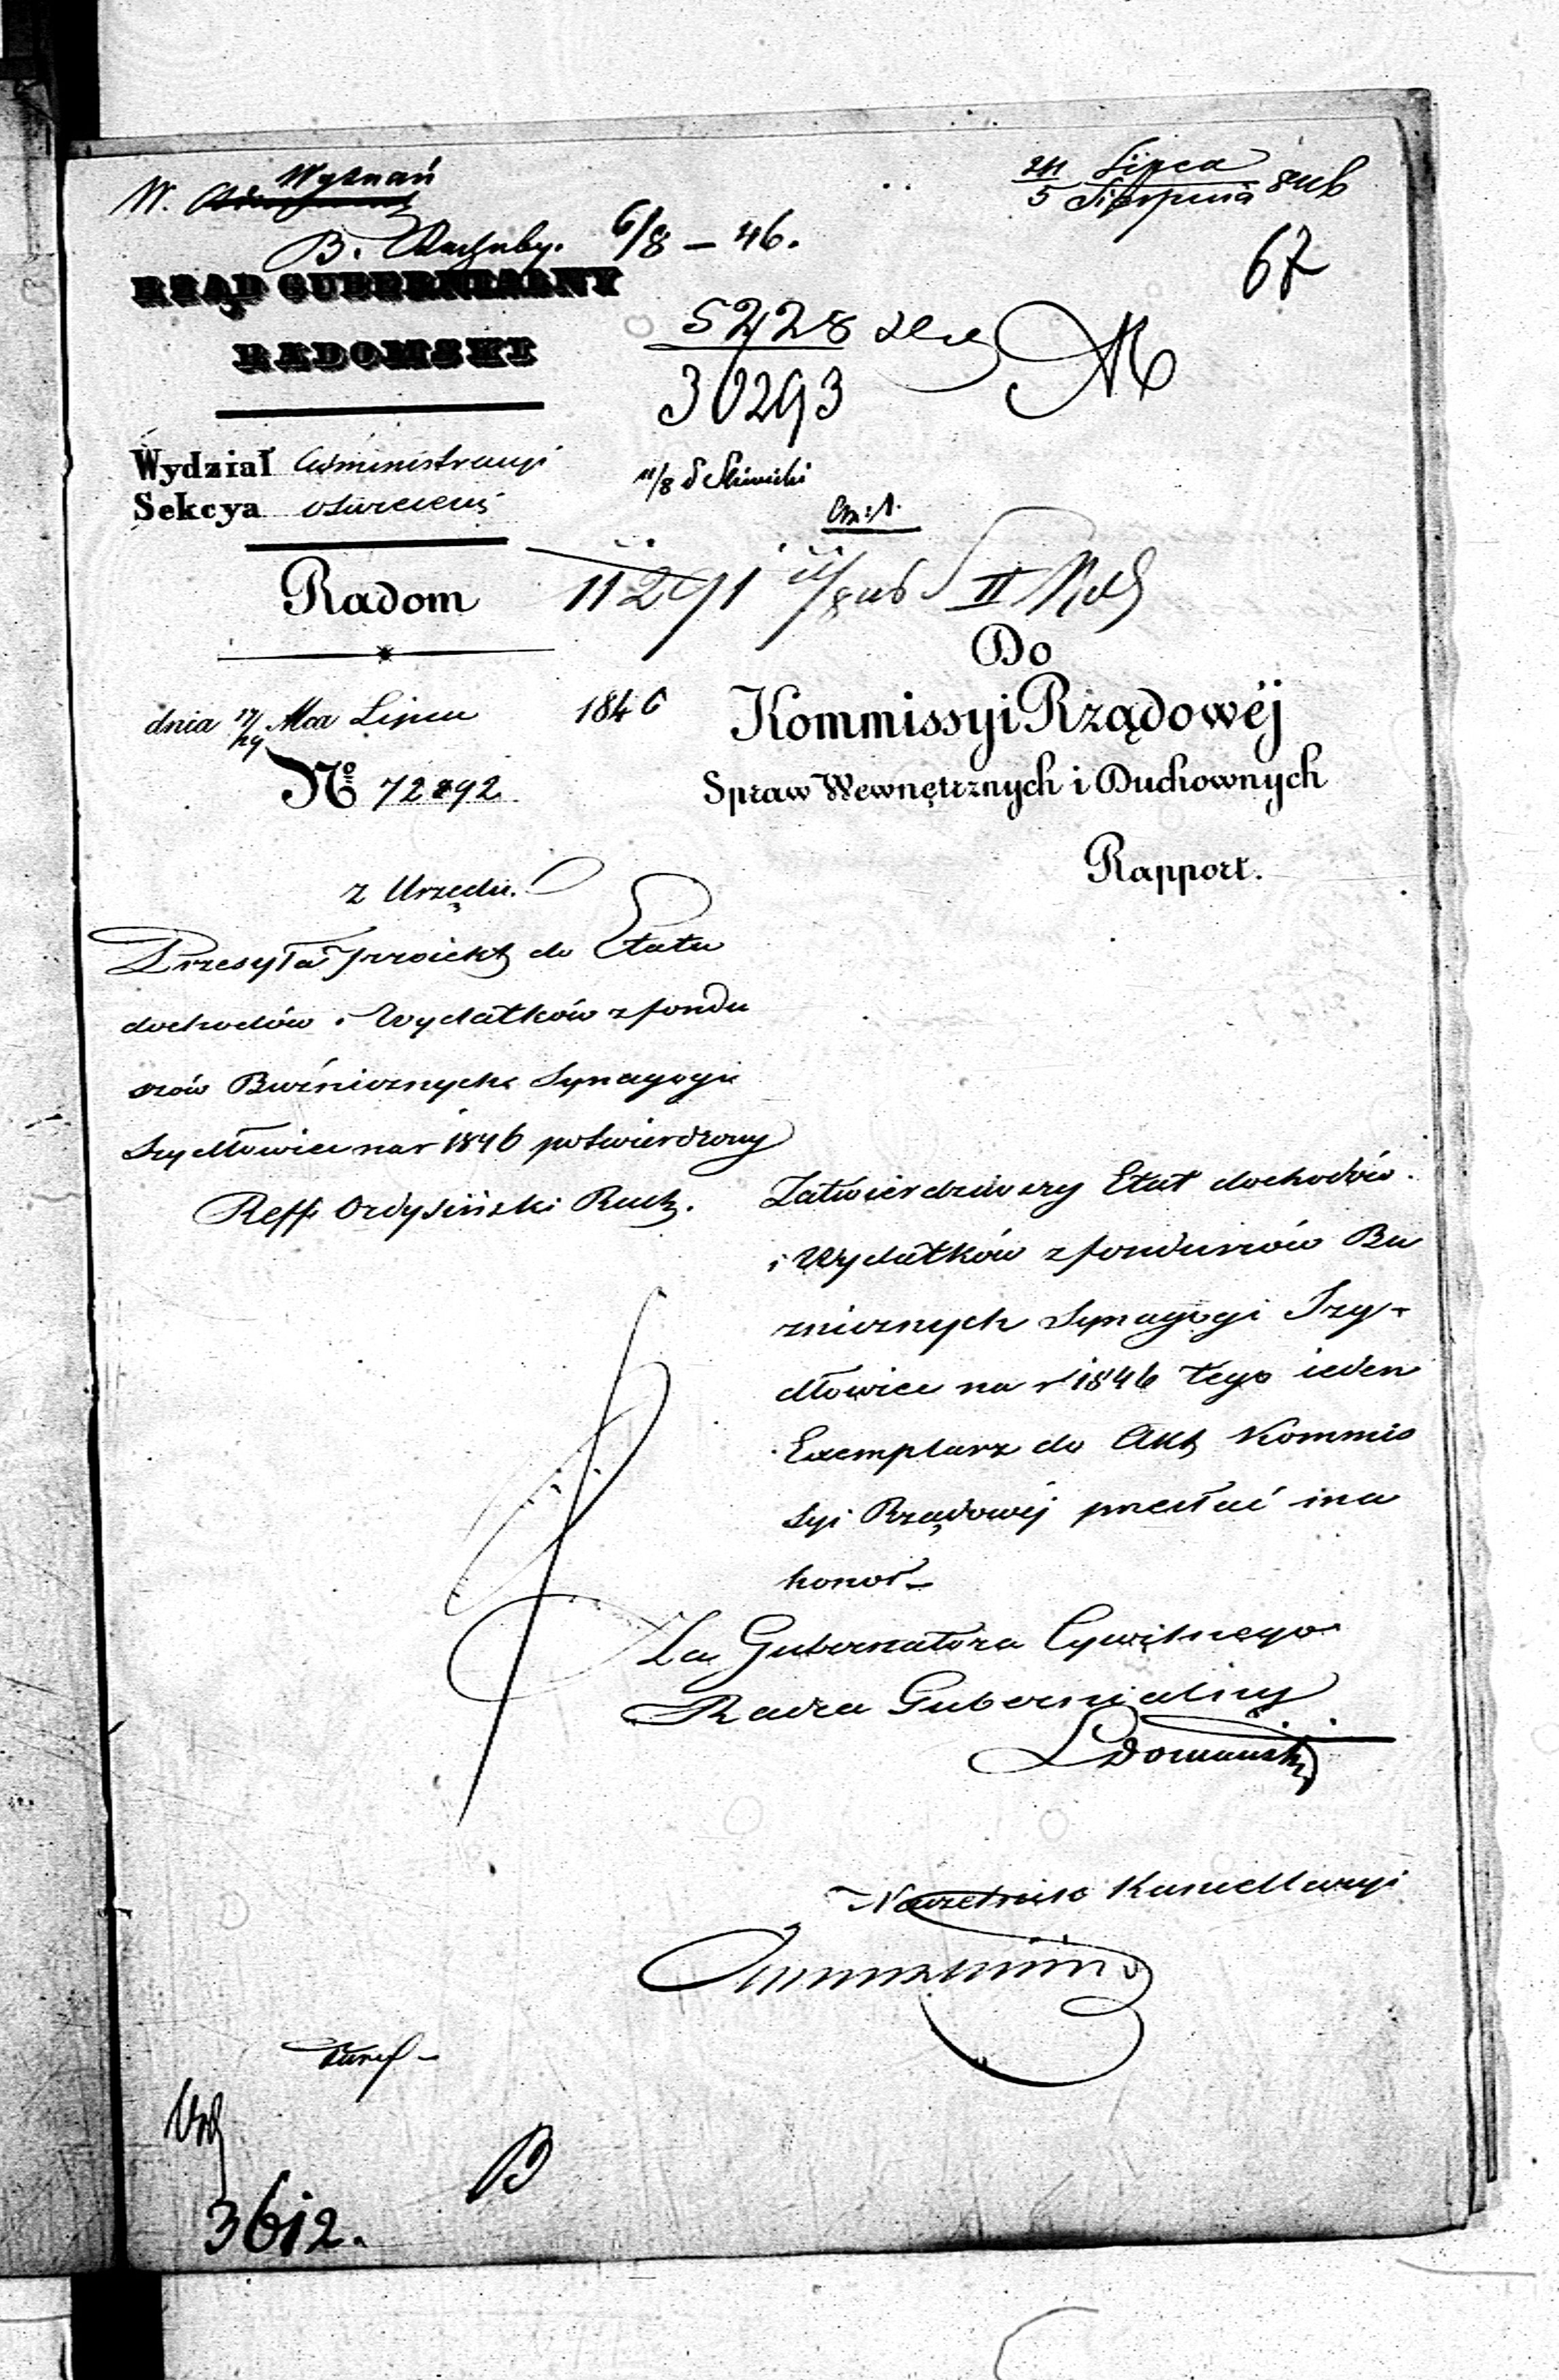 Wyznań
W.
B. Rachuby. 6/8 – 46.
24 Lipca
5 Sierpnia 846
67
RZĄD GUBERNIALNY
RADOMSKI
5228
30293
Wydział Administracyi
Sekcya oświecenia
11/8
Radom
11291 II
Do
dnia 17/29 Mca Lipca 1846
Kommissyi Rządowéj
Spraw Wewnętrznych i Duchownych
№ 72892
Rapport.
z Urzędu.
Przesyła projekt do Etatu
dochodów i Wydatków z fundu
szów Bużnicznych Synagogi
Szydłowiec na r 1846 potwierdzony
Reff:
Zatwierdziwszy Etat dochodów
i Wydatków z funduszów Bu
żnicznych Synagogi Szy-
dłowiec na r 1846 tego ieden
Exemplarz do Akt Kommis
syi Rządowéj przesłać ma
honor –
Za Gubernatora Cywilnego
Radca Gubernialny
Naczelnik Kancellaryi
B
3612.